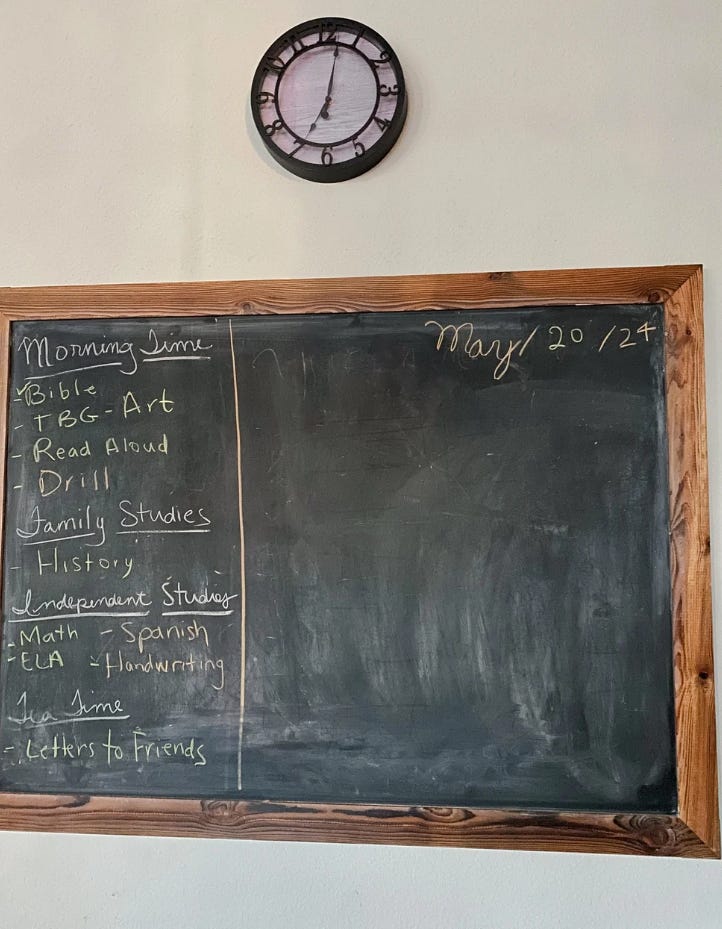 12
1
2
3
4
5
6
7
8
9
10
11
May/20/24
Morning Time
- Bible
- TBG - Art
- Read Aloud
- Drill
Family Studies
- History
Independent Studies
- Math - Spanish
- ELA - Handwriting
Tea Time
- Letters to Friends